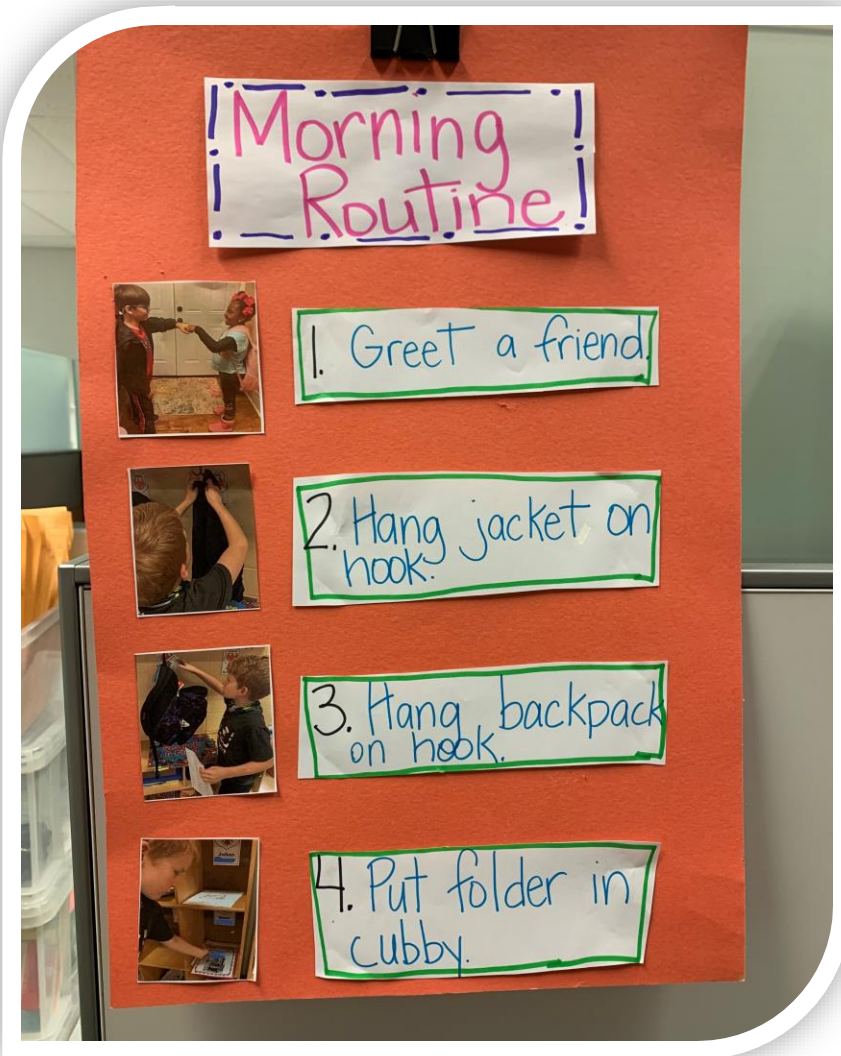 Morning
Routine
1. Greet a friend.
2. Hang jacket on
hook.
3. Hang backpack
on hook.
4. Put folder in
cubby.